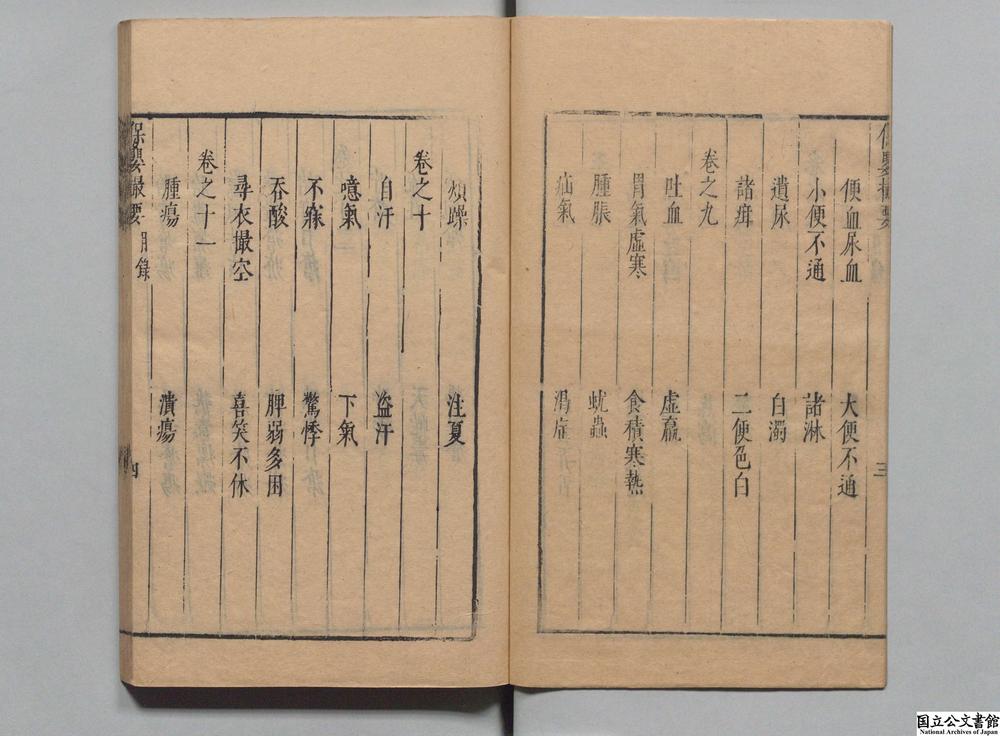 便血尿血 大便不通
小便不通 諸淋
遺尿 白濁
諸疳 二便色白
卷之九
吐血 虛羸
胃氣虛寒 食積寒熱
腫脹 蚘蟲
疝氣
三
煩躁 注夏
卷之十
自汗 盜汗
噫氣 下氣
不寐 驚悸
吞酸 脾弱多困
尋衣撮空 喜笑不休
卷之十一
腫瘍 潰瘍
保嬰撮要 目錄 四
国立公文書館
National Archives of Japan